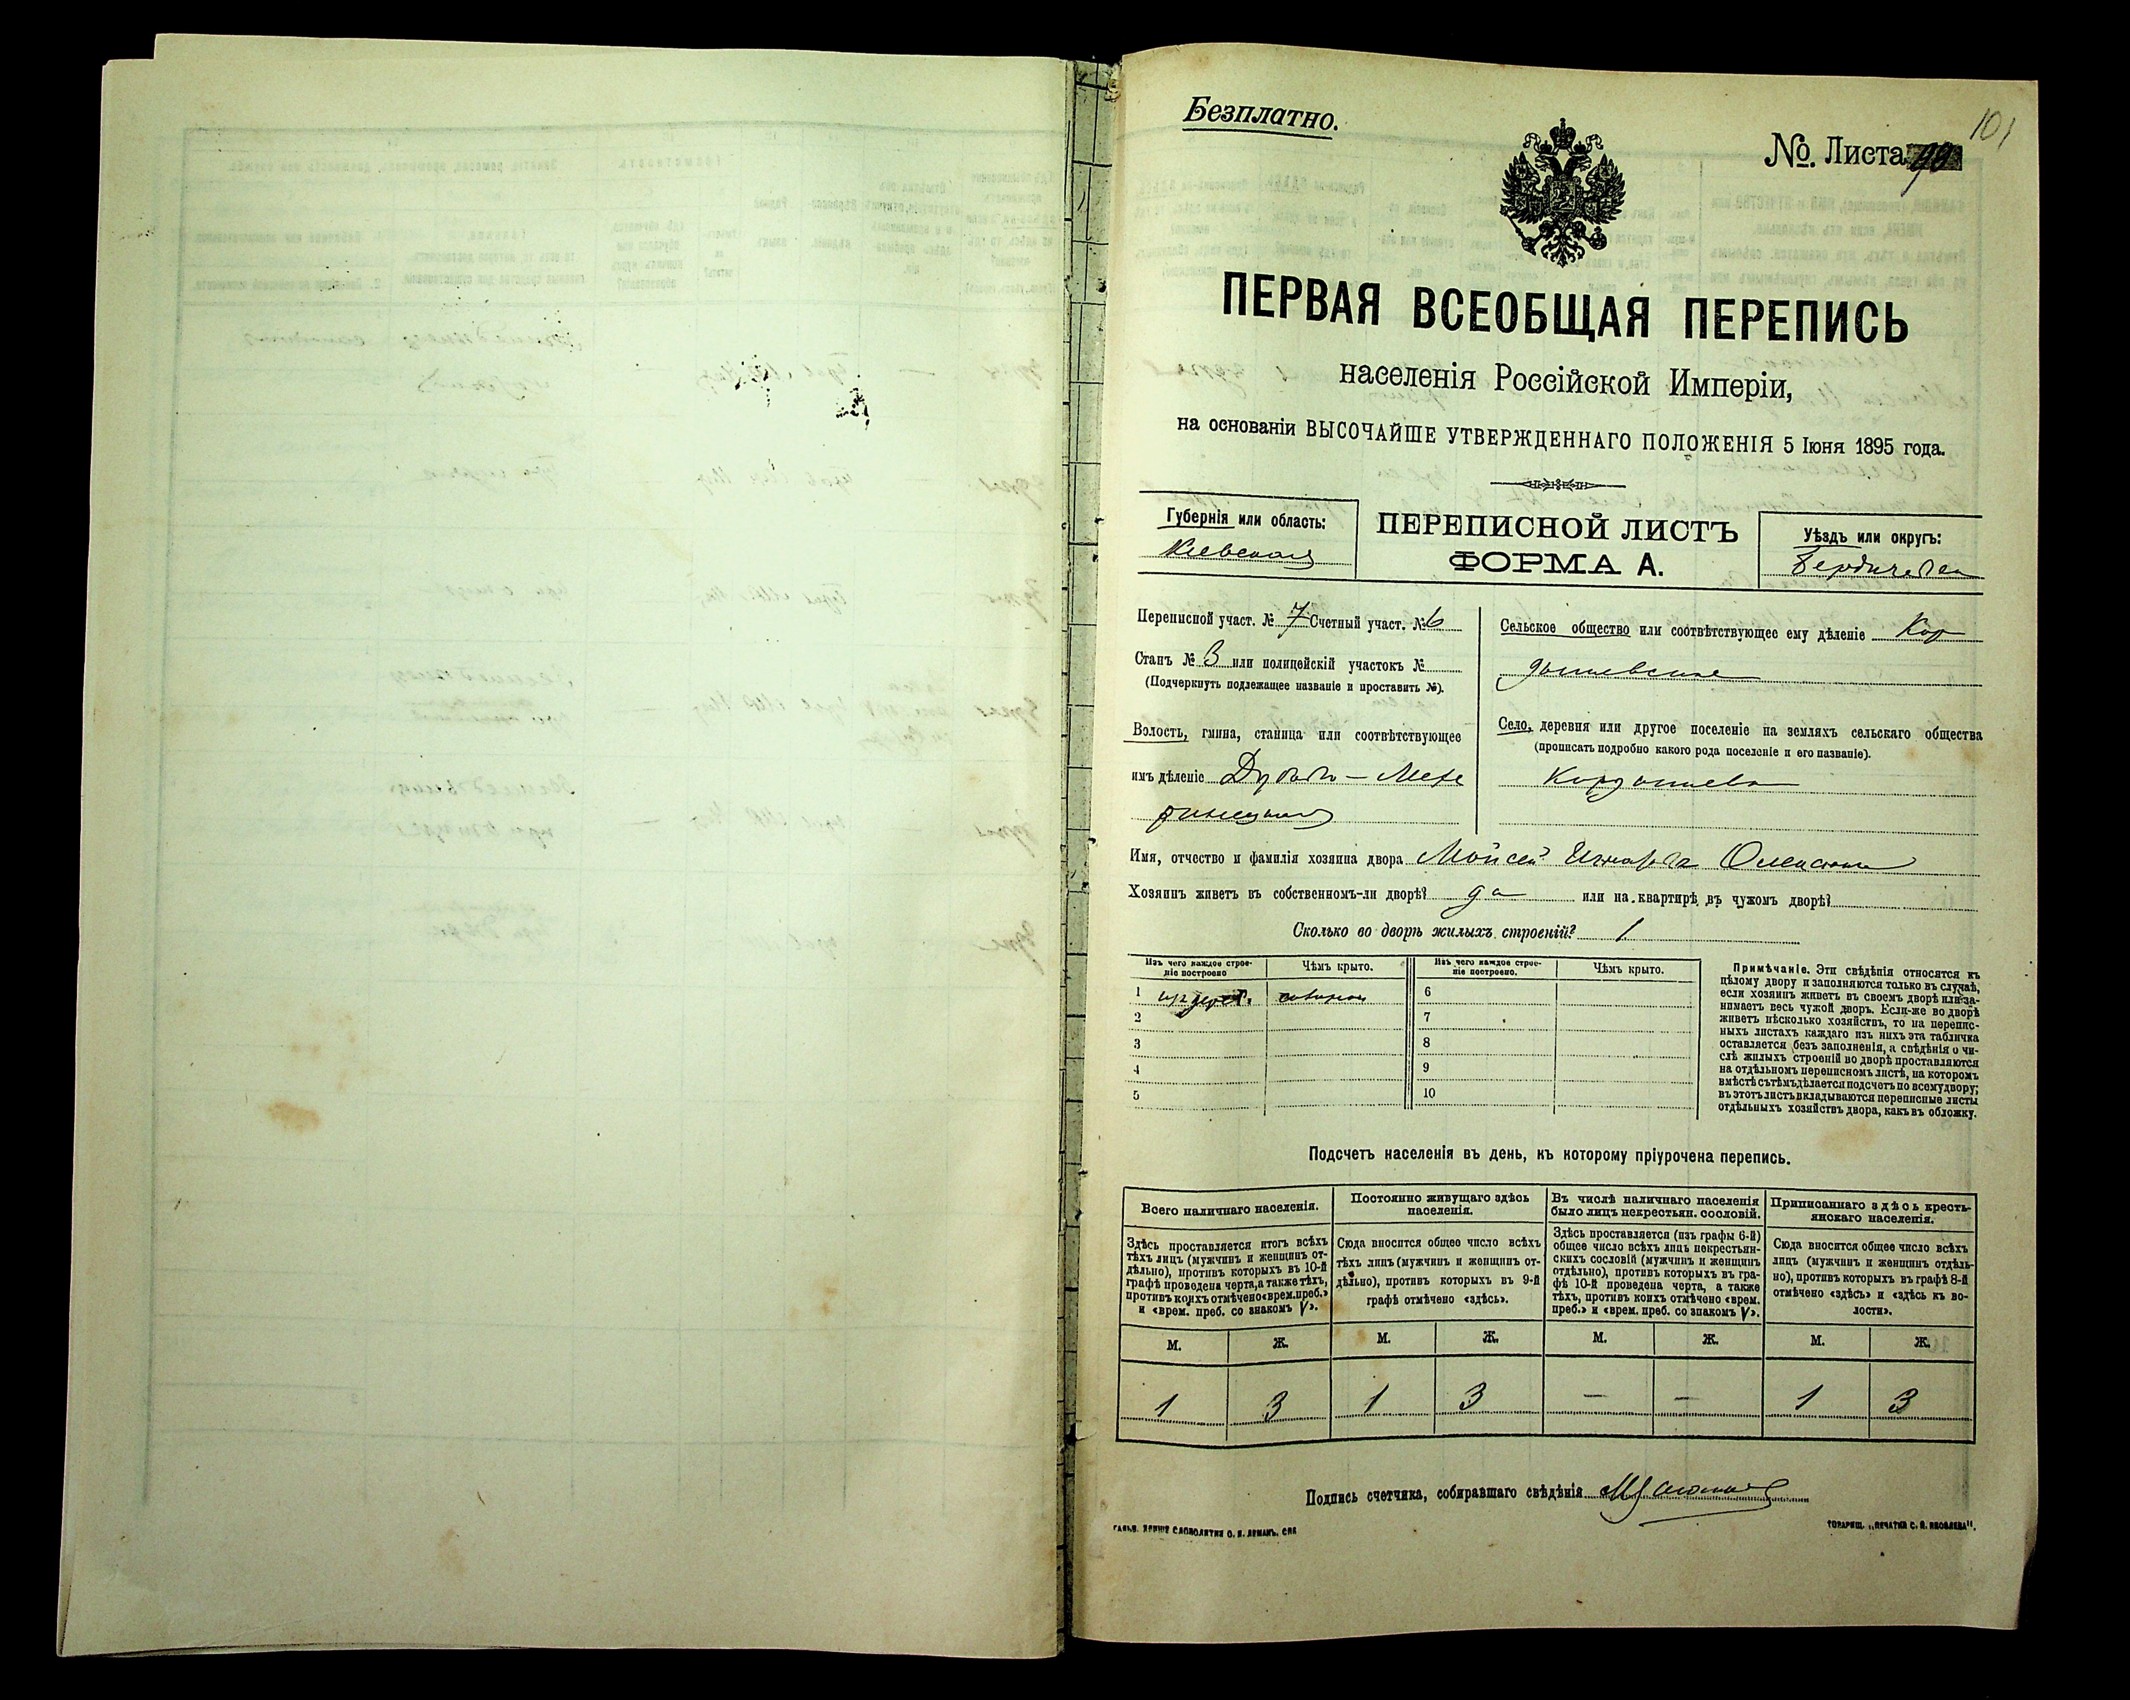 Безплатно.
101
№. Листа 99
ПЕРВАЯ ВСЕОБЩАЯ ПЕРЕПИСЬ
населенія Россійской Имперіи,
на основаніи ВЫСОЧАЙШЕ УТВЕРЖДЕННАГО ПОЛОЖЕНІЯ 5 Іюня 1895 года.
Губернія или область:
Кіевская
ПЕРЕПИСНОЙ ЛИСТЪ
ФОРМА А.
Уѣздъ или округъ:
Бердичевск
Переписной участ. № 7 Счетный участ. № 6
Станъ № 3 или полицейскій участокъ №
(Подчеркнуть подлежащее названіе и проставить №).
Волость, гмина, станица или соотвѣтствующее
имъ дѣленіе
Сельское общество или соотвѣтствующее ему дѣленіе Кор
дышевское
Село, деревня или другое поселеніе на земляхъ сельскаго общества
(прописать подробно какого рода поселеніе и его названіе).
Кордышевка
Имя, отчество и фамилія хозяина двора Мойсей
Хозяинъ живетъ въ собственномъ-ли дворѣ? да или на квартирѣ въ чужомъ дворѣ?
Сколько во дворѣ жилыхъ строеній? 1
Изъ чего каждое строе-
ніе построено
Чѣмъ крыто.
Изъ чего каждое строе-
ніе построено.
Чѣмъ крыто.
1 соломою 6
2 7
3 8
4 9
5 10
Примѣчаніе. Эти свѣдѣнія относятся къ
цѣлому двору и заполняются только въ случаѣ,
если хозяинъ живетъ въ своемъ дворѣ или за-
нимаетъ весь чужой дворъ. Если-же во дворѣ
живетъ нѣсколько хозяйствъ, то на перепис-
ныхъ листахъ каждаго изъ нихъ эта табличка
оставляется безъ заполненія, а свѣдѣнія о чи-
слѣ жилыхъ строеній во дворѣ проставляются
на отдѣльномъ переписномъ листѣ, на которомъ
вмѣстѣ съ тѣмъ дѣлается подсчетъ по всему двору;
въ этотъ листъ вкладываются переписные листы
отдѣльныхъ хозяйствъ двора, какъ въ обложку.
Подсчетъ населенія въ день, къ которому пріурочена перепись.
Всего наличнаго населенія.
Здѣсь проставляется итогъ всѣхъ
тѣхъ лицъ (мужчинъ и женщинъ от-
дѣльно), противъ которыхъ въ 10-й
графѣ проведена черта, а также тѣхъ,
противъ коихъ отмѣчено «врем. преб.»
и «врем. преб. со знакомъ V».
Постоянно живущаго здѣсь
населенія.
Сюда вносится общее число всѣхъ
тѣхъ лицъ (мужчинъ и женщинъ от-
дѣльно), противъ которыхъ въ 9-й
графѣ отмѣчено «здѣсь».
Въ числѣ наличнаго населенія
было лицъ некрестьян. сословій.
Здѣсь проставляется (изъ графы 6-й)
общее число всѣхъ лицъ некрестьян-
скихъ сословій (мужчинъ и женщинъ
отдѣльно), противъ которыхъ въ гра-
фѣ 10-й проведена черта, а также
тѣхъ, противъ коихъ отмѣчено «врем.
преб.» и «врем. преб. со знакомъ V».
Приписаннаго здѣсь кресть-
янскаго населенія.
Сюда вносится общее число всѣхъ
лицъ (мужчинъ и женщинъ отдѣль-
но), противъ которыхъ въ графѣ 8-й
отмѣчено «здѣсь» и «здѣсь къ во-
лости».
М. Ж. М. Ж. М. Ж. М. Ж.
1 3 1 3 — — 1 3
Подпись счетчика, собиравшаго свѣдѣнія
ТОВАРИЩ. „ПЕЧАТНЯ С. П. ЯКОВЛЕВА".